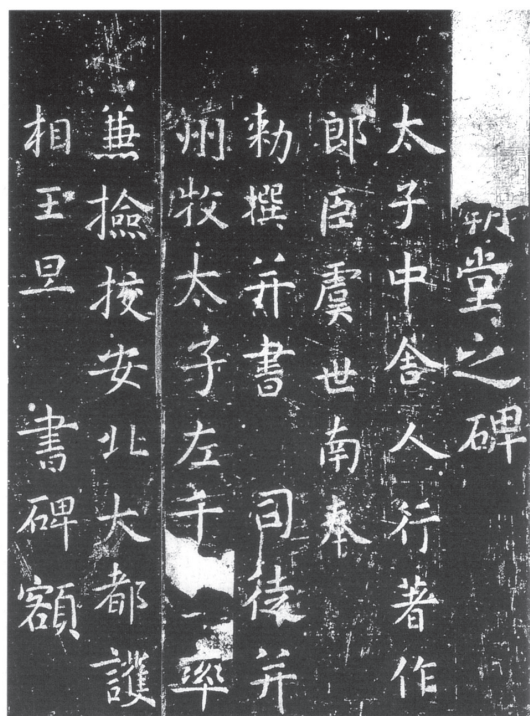 堂之碑
太子中舍人行著作
郎臣虞世南奉
勑撰并書　司徒并
州牧太子左千　率
兼撿挍安北大都護
相王旦　書碑額